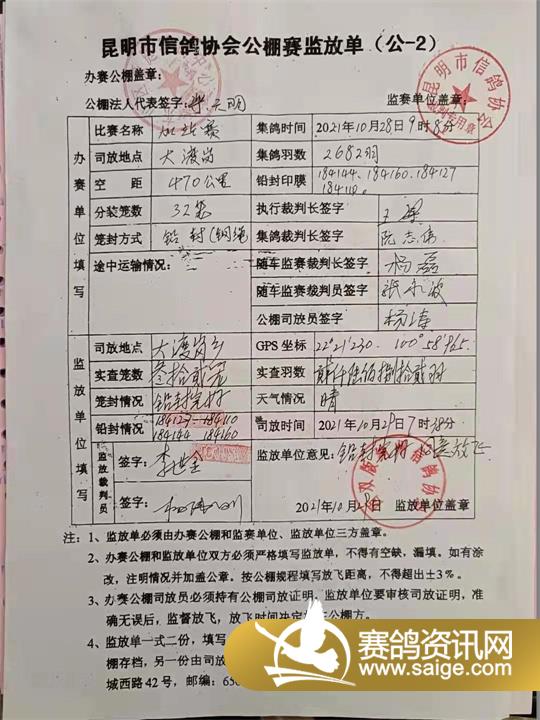 昆明市信鸽协会公棚赛监放单（公-2）
办赛公棚盖章：
公棚法人代表签字：
监赛单位盖章：
昆明市信鸽协会
裁判专用章
办赛单位填写
比赛名称
集鸽时间 2021年10月28日9时8分
司放地点 大渡岗
集鸽羽数 2682羽
空 距 470公里
铅封印膜 184144、184160、184127
184110
分装笼数 32笼
执行裁判长签字
笼封方式 铅封（钢绳
集鸽裁判长签字 阮志伟
途中运输情况：
随车监赛裁判长签字 杨磊
随车监赛裁判员签字
公棚司放员签字 杨涛
监放单位填写
司放地点 大渡岗乡
GPS 坐标 22°21′230. 100°58′965.
实查笼数 叁拾贰笼
实查羽数
笼封情况 铅封完好
天气情况 晴
铅封情况 184127 184110
184144 184160
司放时间 2021年10月29日7时38分
监放裁判员
签字：
监放单位意见：铅封完好 同意放飞
签字：
2021年10月29日 监放单位盖章
注：1、监放单必须由办赛公棚和监赛单位、监放单位三方盖章。
2、办赛公棚和监放单位双方必须严格填写监放单，不得有空缺，漏填。如有涂
改，注明情况并加盖公章。按公棚规程填写放飞距离，不得超出±3％。
3、办赛公棚司放员必须持有公棚司放证明，监放单位要审核司放证明，准
确无误后，监督放飞，放飞时间决定
公棚方。
4、监放单一式二份，填写
棚存档，另一份由司放
城西路42号，邮编：650
赛鸽资讯网
www.saige.com